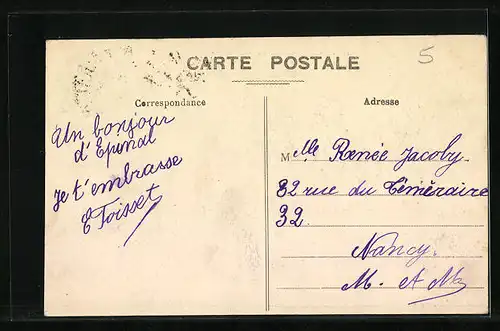 CARTE POSTALE
5
Correspondance
Adresse
Un bonjour
d'Epinal
Je t'embrasse
E Toisset
Mlle Renée Jacoby
32 rue du Téméraire
32.
Nancy.
M. et Mlle